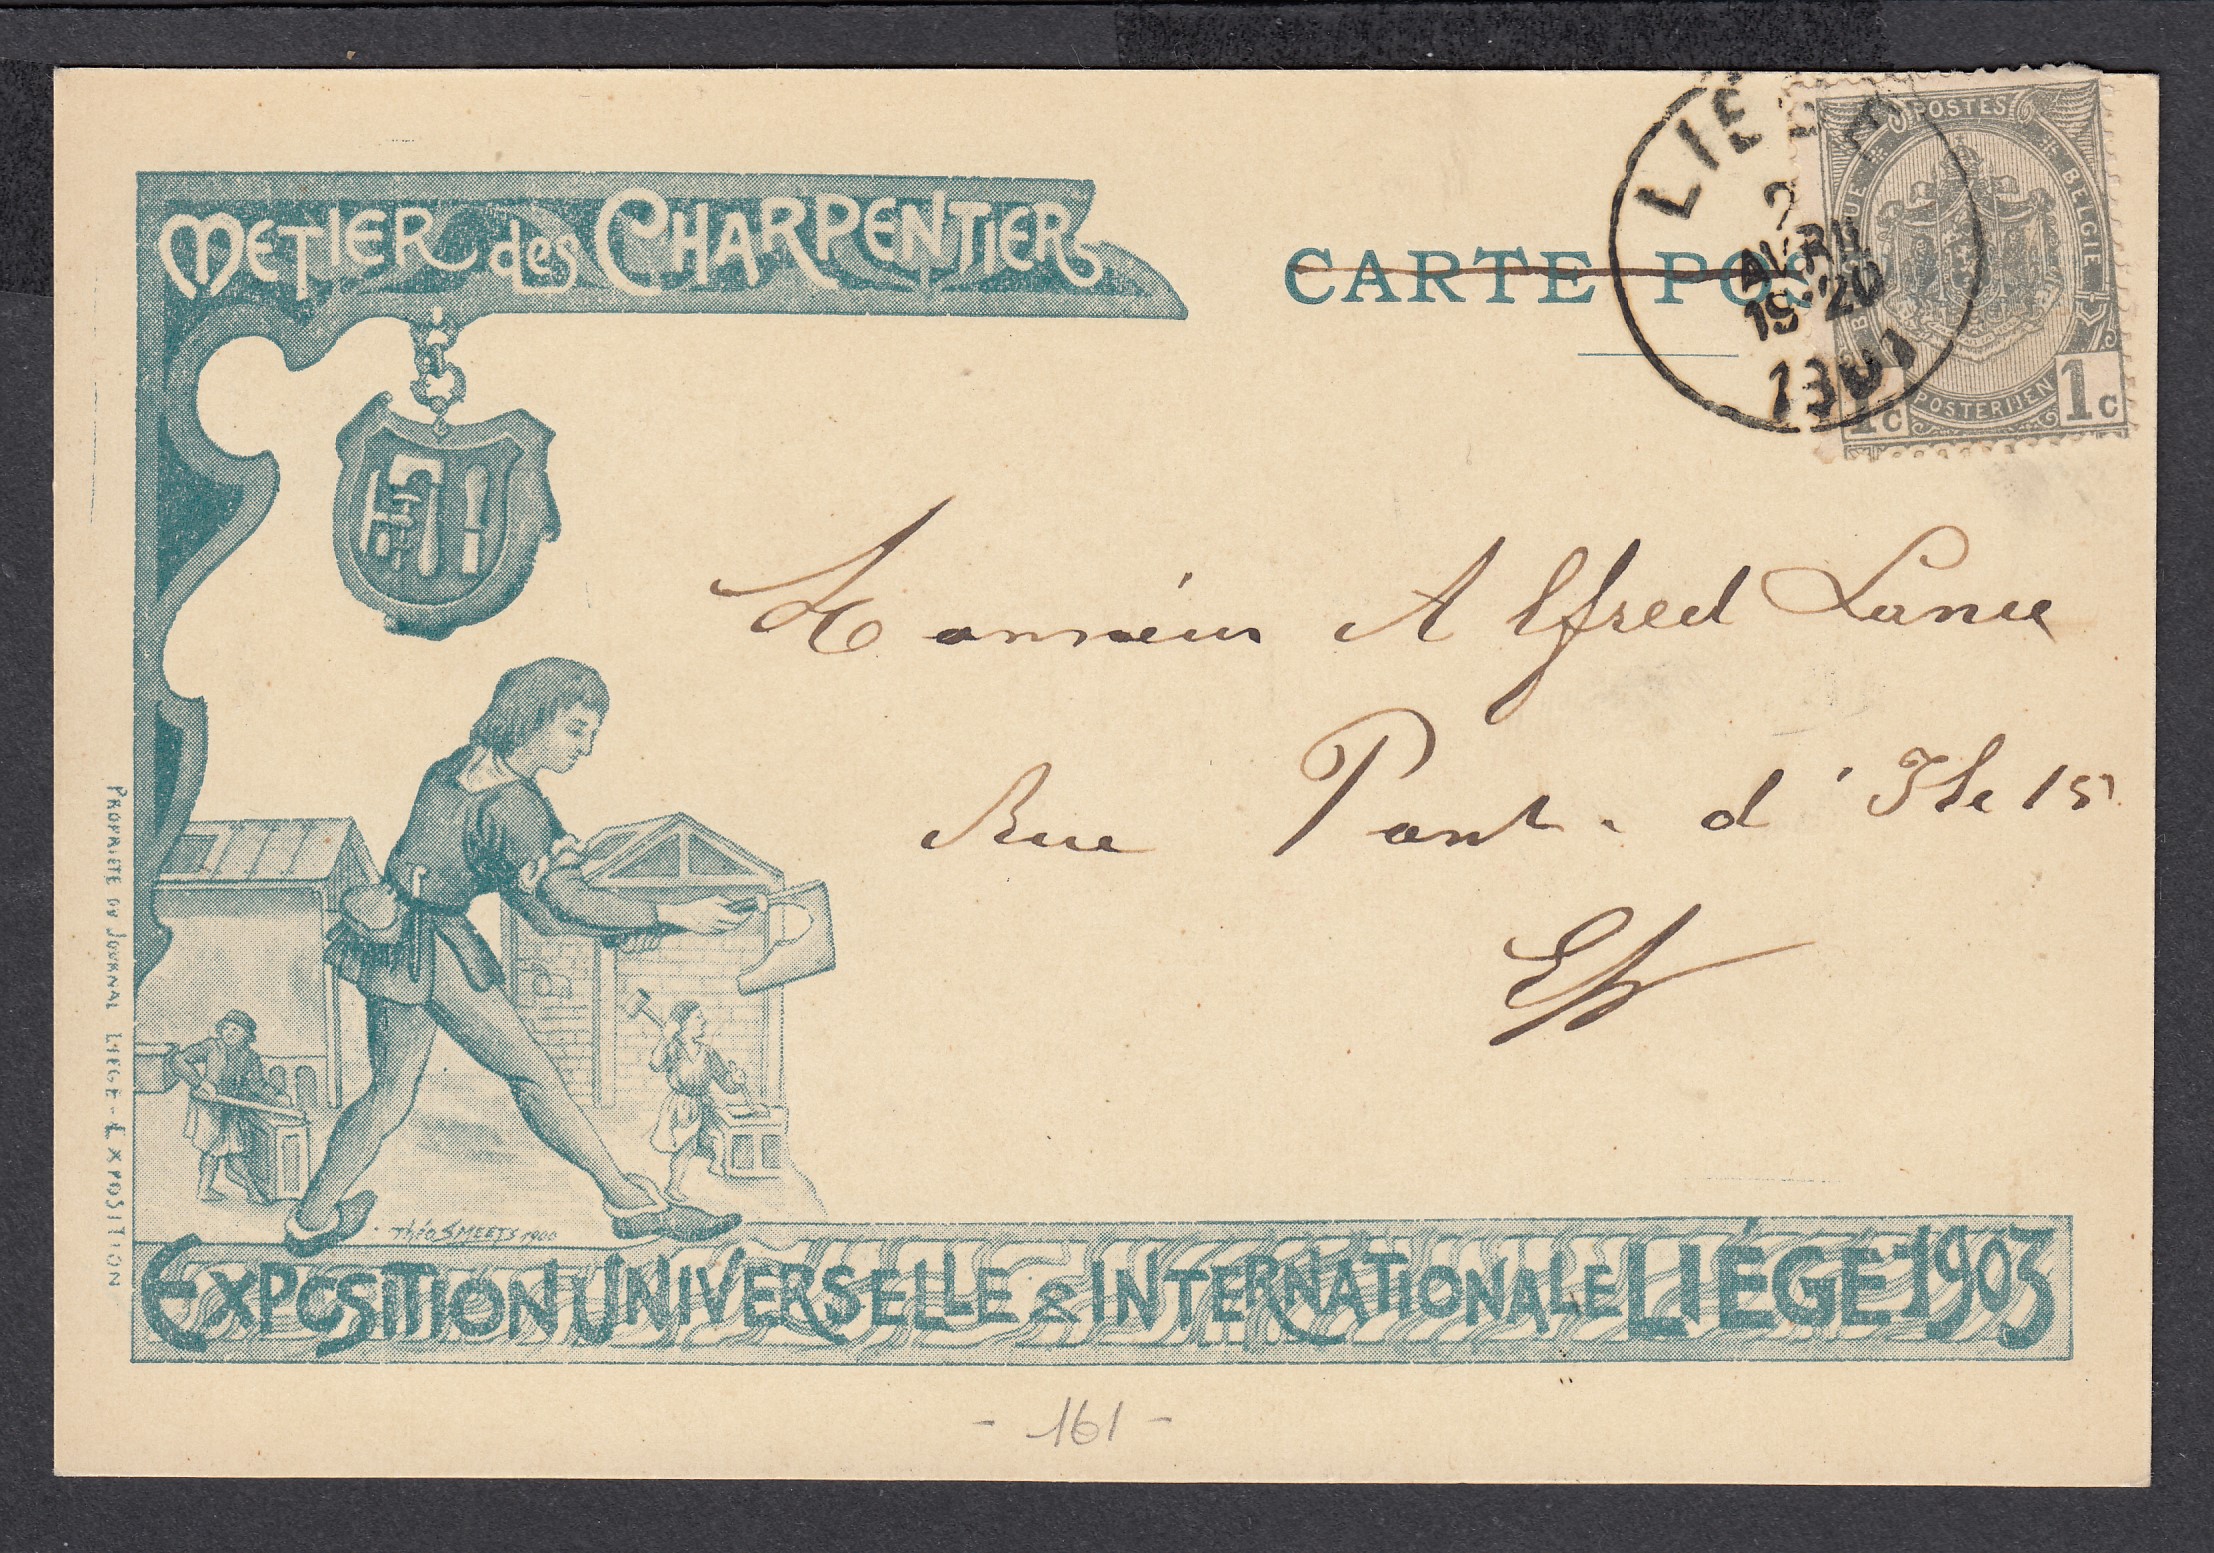 METIER des CHARPENTIERS
CARTE POS
LIÉGE
2
AVRIL
19-20
1901
POSTES
BELGIQUE
BELGIE
POSTERIJEN
1c
1c
Monsieur Alfred Lance
Rue Pont. d'Ile 15
E/V
PROPRIETE DU JOURNAL LIEGE-EXPOSITION
Théo SMEETS 1900
EXPOSITION UNIVERSELLE & INTERNATIONALE LIÉGE 1903
- 161 -